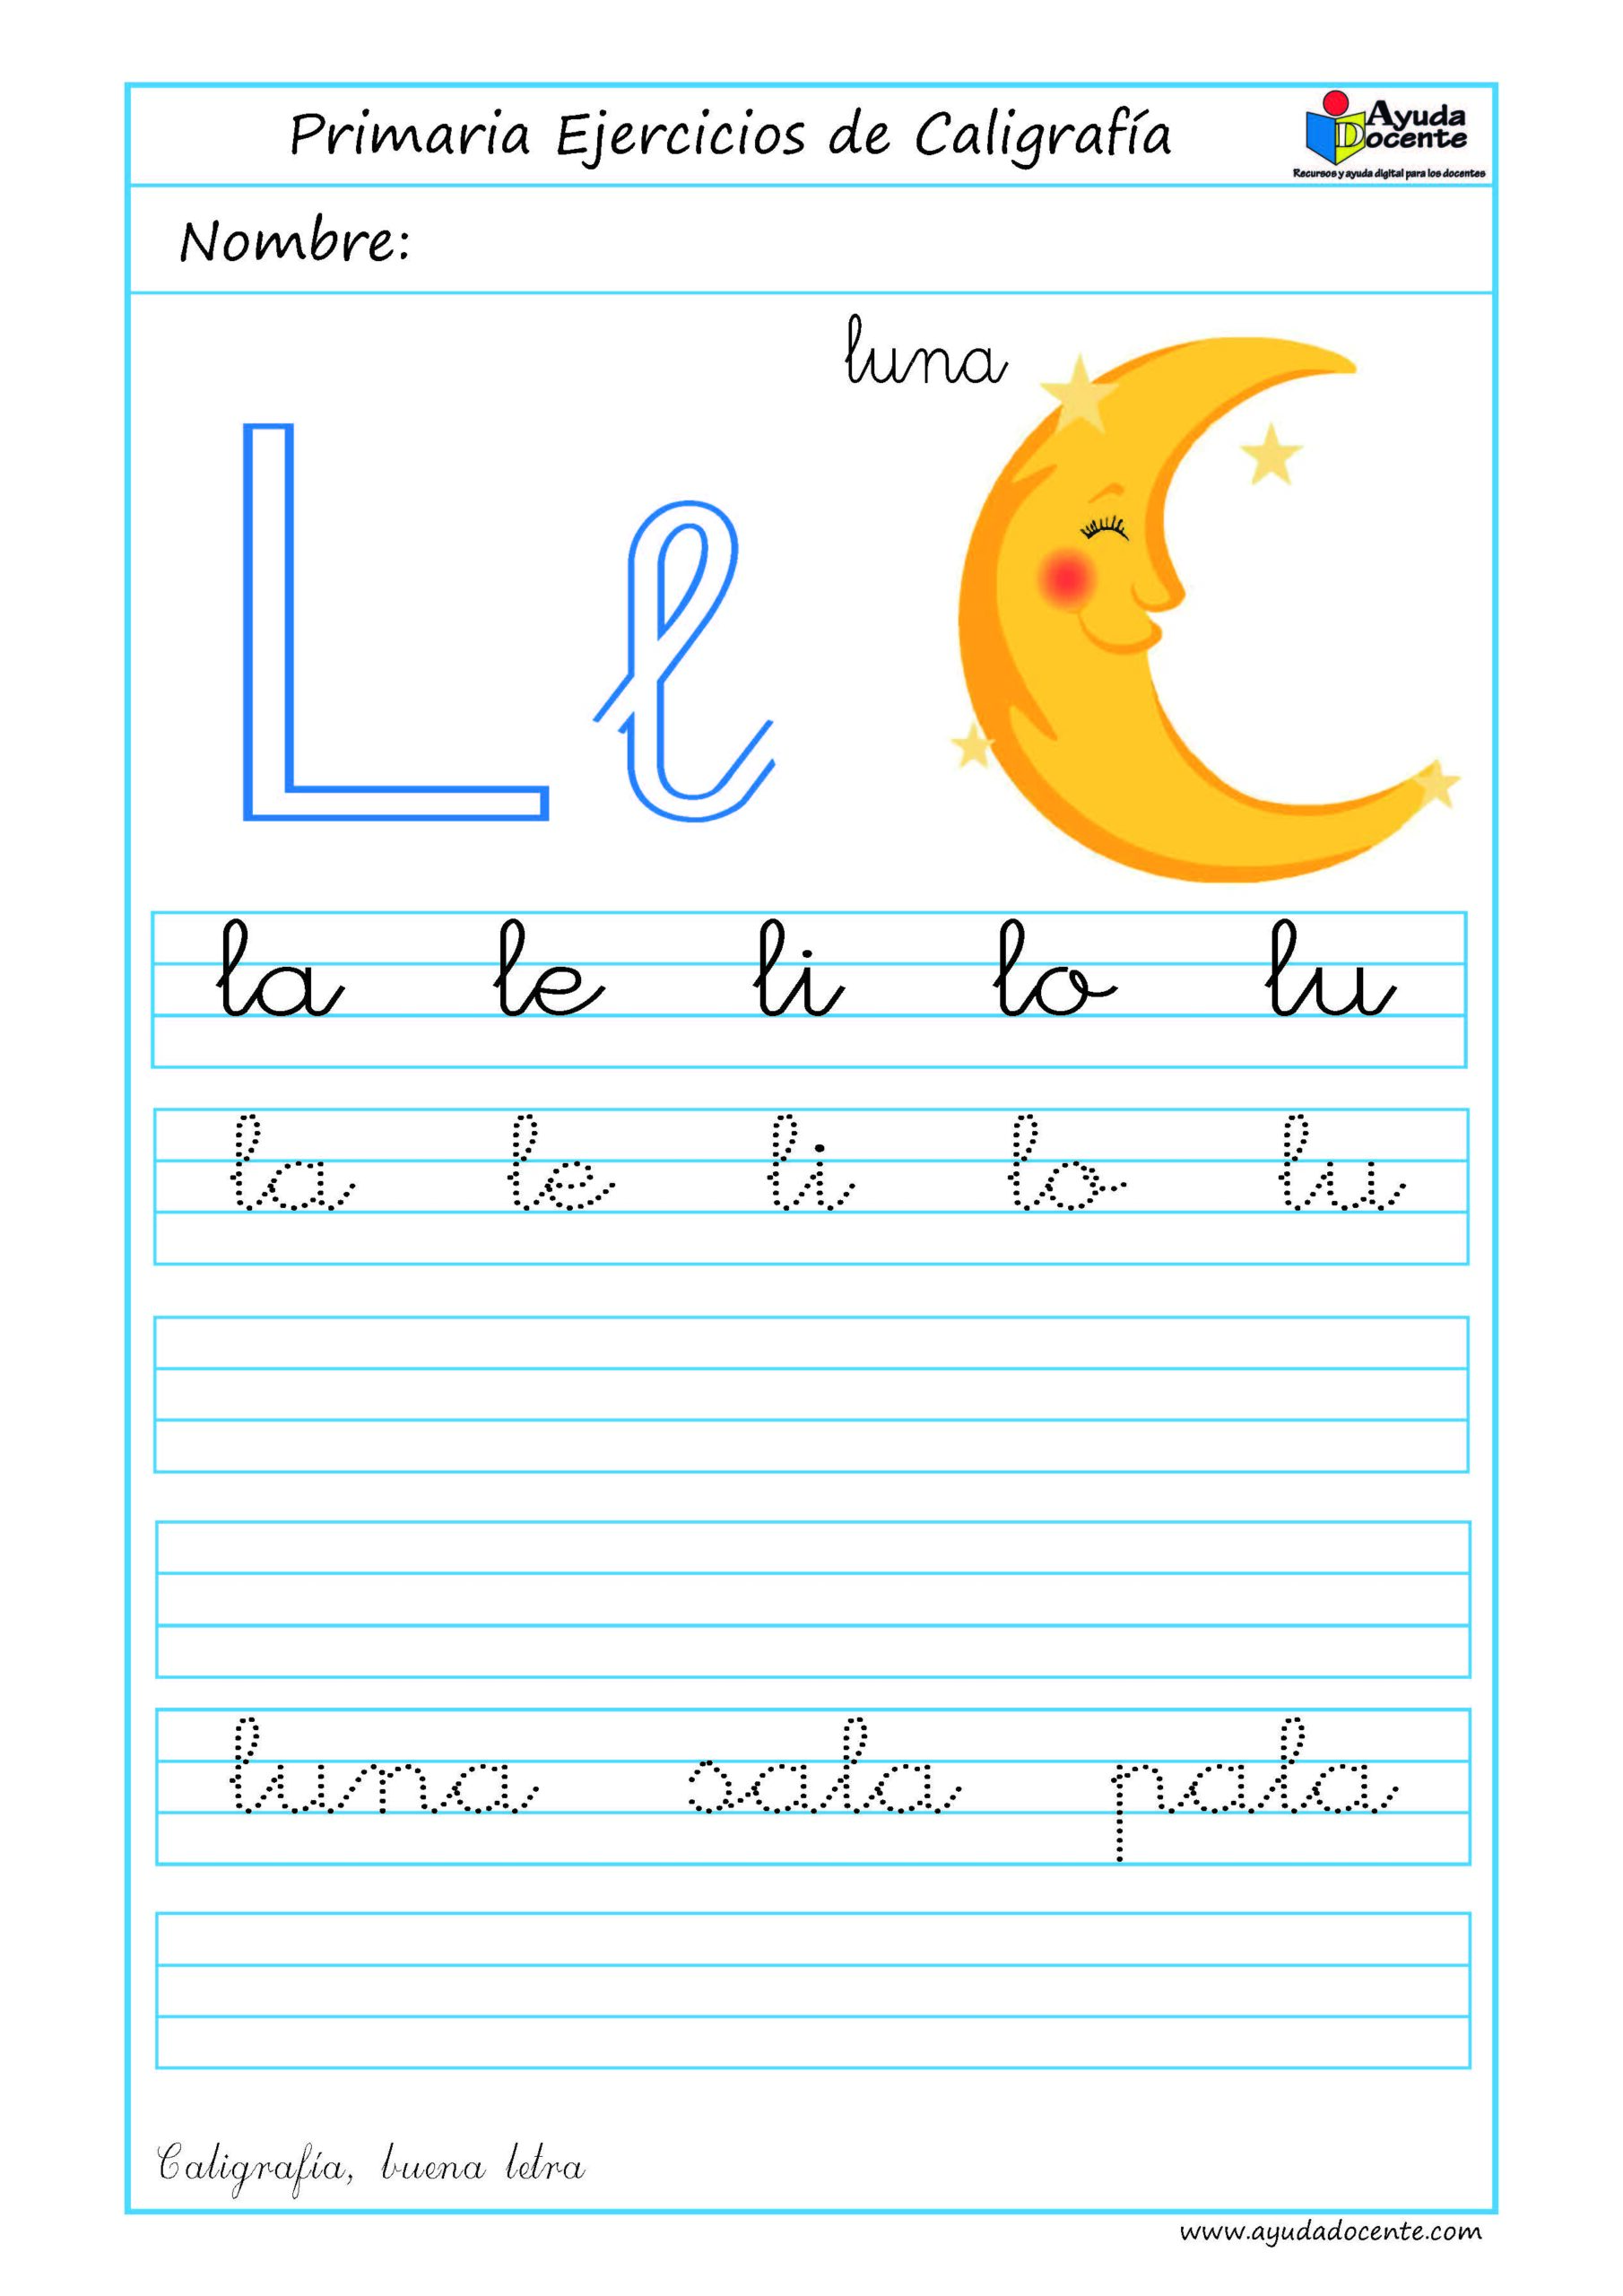 Primaria Ejercicios de Caligrafía
Ayuda
Docente
Recursos y ayuda digital para los docentes
Nombre:
luna
L l
la le li lo lu
la le li lo lu
luna sala pala
Caligrafía, buena letra
www.ayudadocente.com